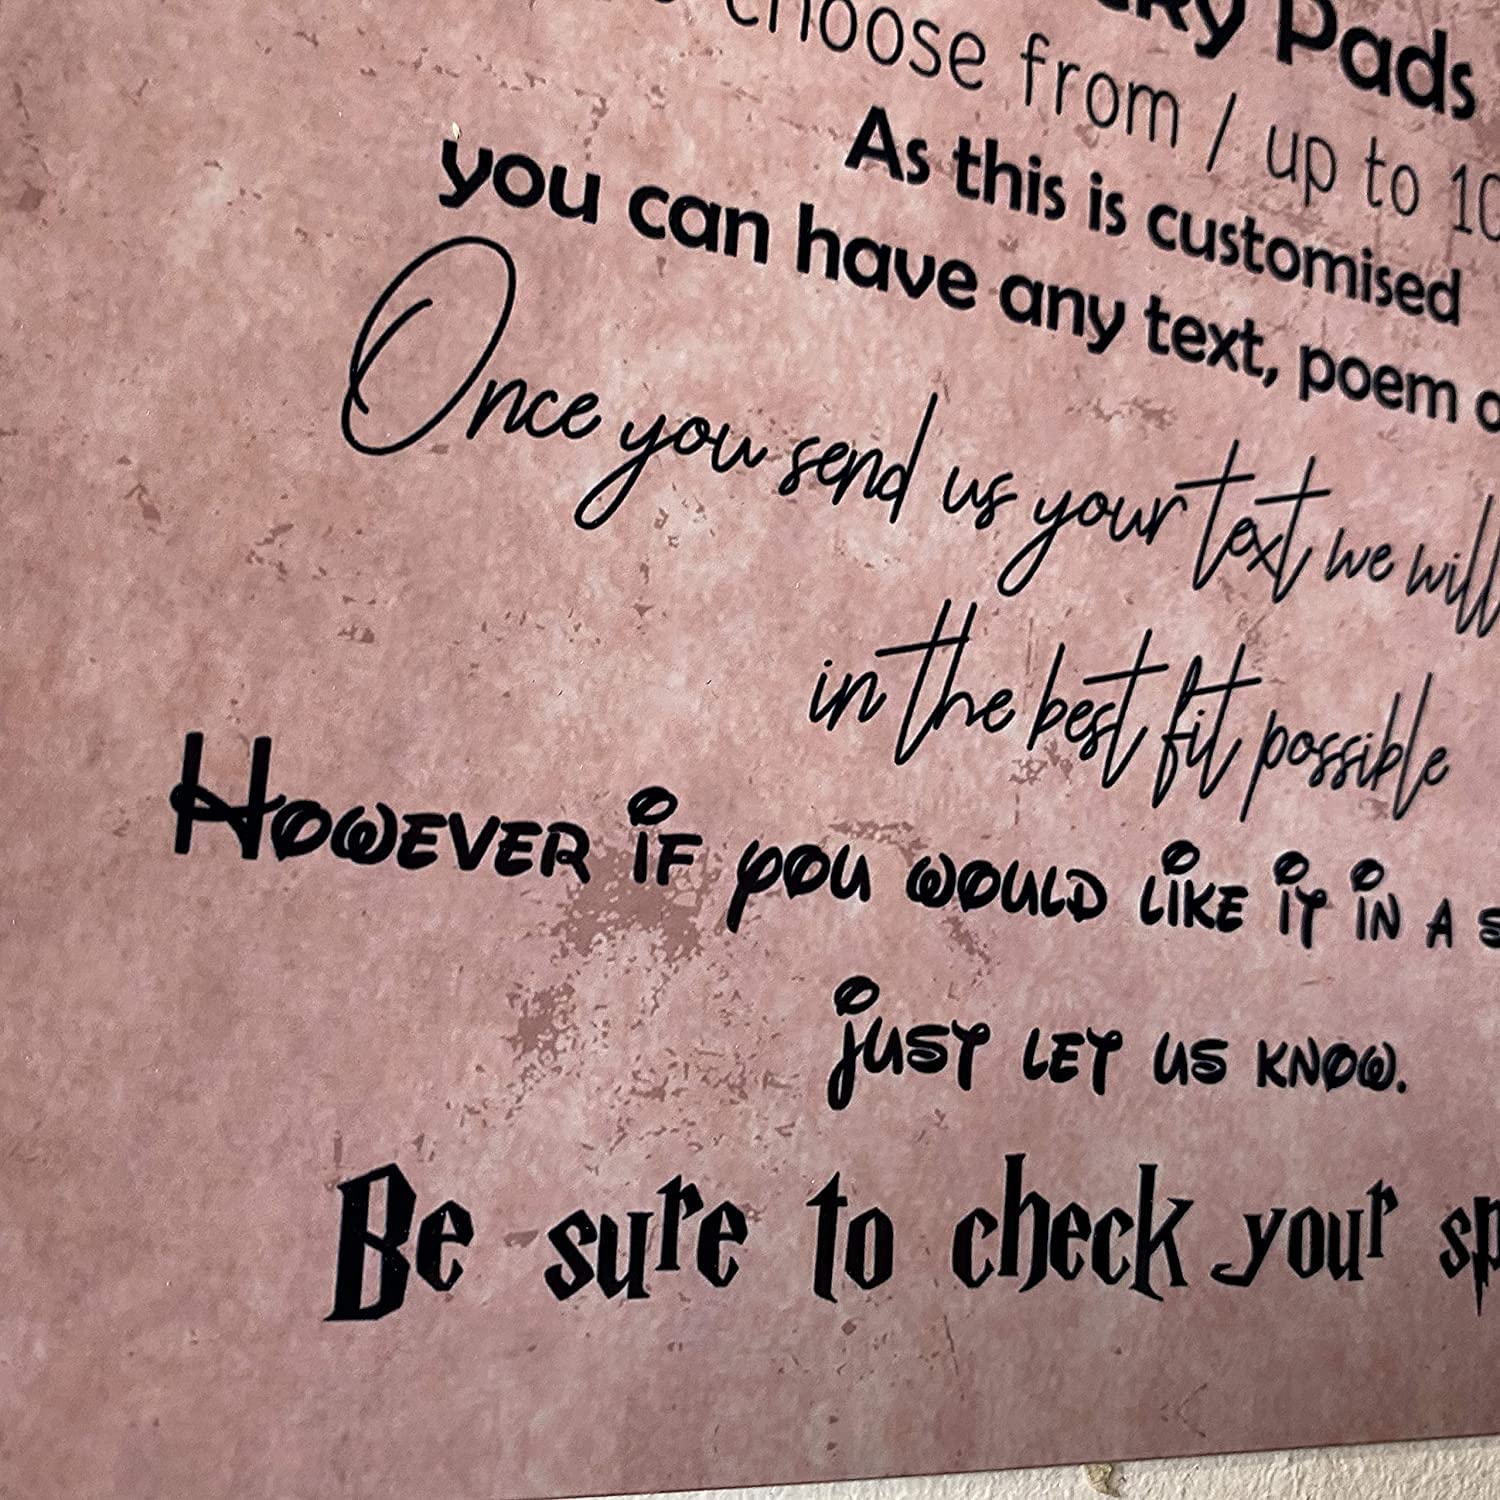 Pads
choose from / up to
As this is customised
you can have any text, poem
Once you send us your text we will
in the best fit possible
However if you would like it in a
just let us know.
Be sure to check your